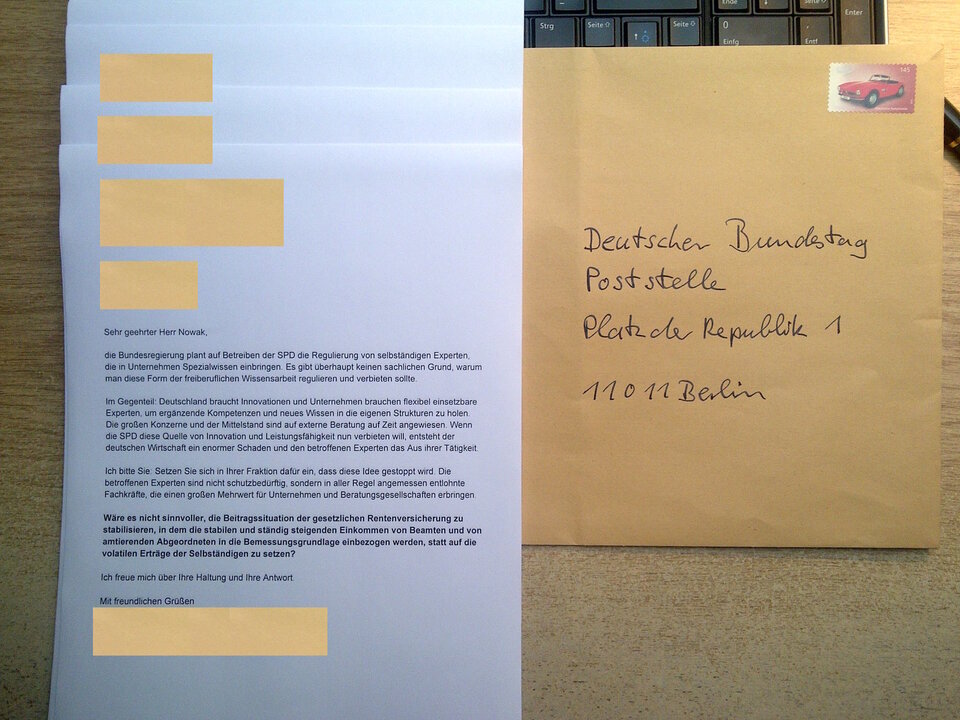 Strg
Seite
Seite
Ende
0
Einfg
Entf
Enter
145
Sehr geehrter Herr Nowak,
die Bundesregierung plant auf Betreiben der SPD die Regulierung von selbständigen Experten,
die in Unternehmen Spezialwissen einbringen. Es gibt überhaupt keinen sachlichen Grund, warum
man diese Form der freiberuflichen Wissensarbeit regulieren und verbieten sollte.
Im Gegenteil: Deutschland braucht Innovationen und Unternehmen brauchen flexibel einsetzbare
Experten, um ergänzende Kompetenzen und neues Wissen in die eigenen Strukturen zu holen.
Die großen Konzerne und der Mittelstand sind auf externe Beratung auf Zeit angewiesen. Wenn
die SPD diese Quelle von Innovation und Leistungsfähigkeit nun verbieten will, entsteht der
deutschen Wirtschaft ein enormer Schaden und den betroffenen Experten das Aus ihrer Tätigkeit.
Ich bitte Sie: Setzen Sie sich in Ihrer Fraktion dafür ein, dass diese Idee gestoppt wird. Die
betroffenen Experten sind nicht schutzbedürftig, sondern in aller Regel angemessen entlohnte
Fachkräfte, die einen großen Mehrwert für Unternehmen und Beratungsgesellschaften erbringen.
Wäre es nicht sinnvoller, die Beitragssituation der gesetzlichen Rentenversicherung zu
stabilisieren, in dem die stabilen und ständig steigenden Einkommen von Beamten und von
amtierenden Abgeordneten in die Bemessungsgrundlage einbezogen werden, statt auf die
volatilen Erträge der Selbständigen zu setzen?
Ich freue mich über Ihre Haltung und Ihre Antwort
Mit freundlichen Grüßen
Deutscher Bundestag
Poststelle
Platz der Republik 1
11011 Berlin